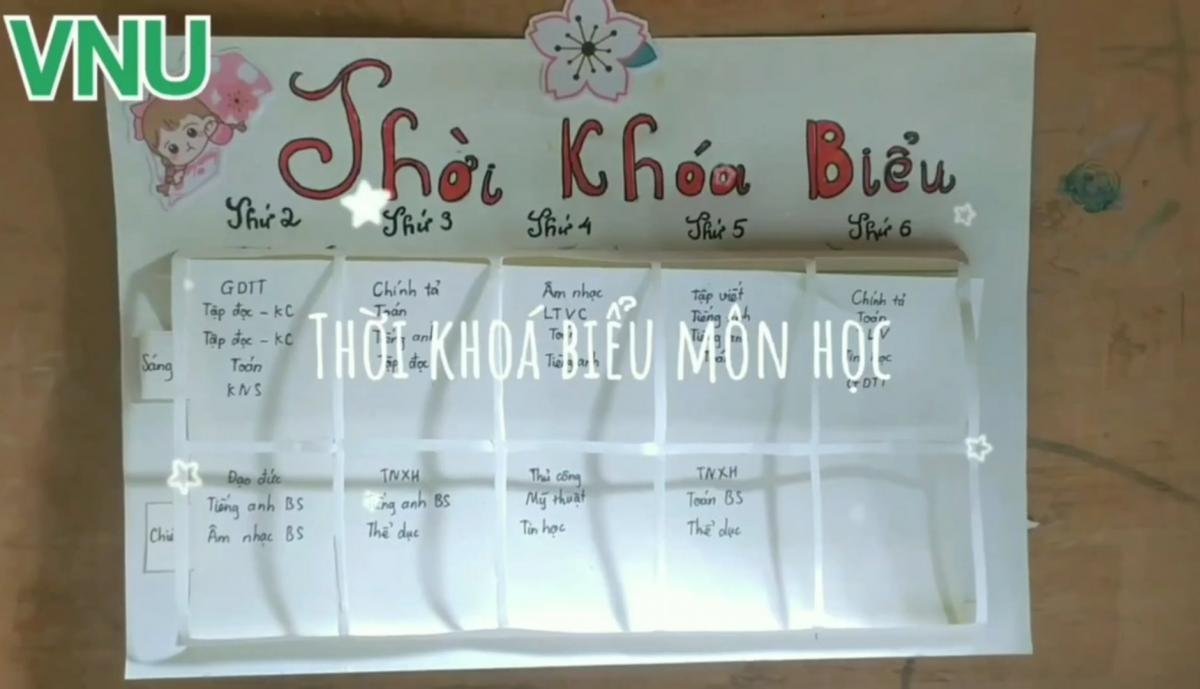 VNU
Thời Khóa Biểu
Thứ 2 Thứ 3 Thứ 4 Thứ 5 Thứ 6
THỜI KHOÁ BIỂU MÔN HỌC
Sáng
GDTT
Tập đọc - KC
Tập đọc - KC
Toán
KNS
Chính tả
Toán
Tiếng anh
Tập đọc
Âm nhạc
LTVC
Toán
Tiếng anh
Tập viết
Tiếng anh
Tiếng anh
Chính tả
Toán
Tin học
GDTT
Đạo đức
Tiếng anh BS
Âm nhạc BS
TNXH
Tiếng anh BS
Thể dục
Thủ công
Mỹ thuật
Tin học
TNXH
Toán BS
Thể dục